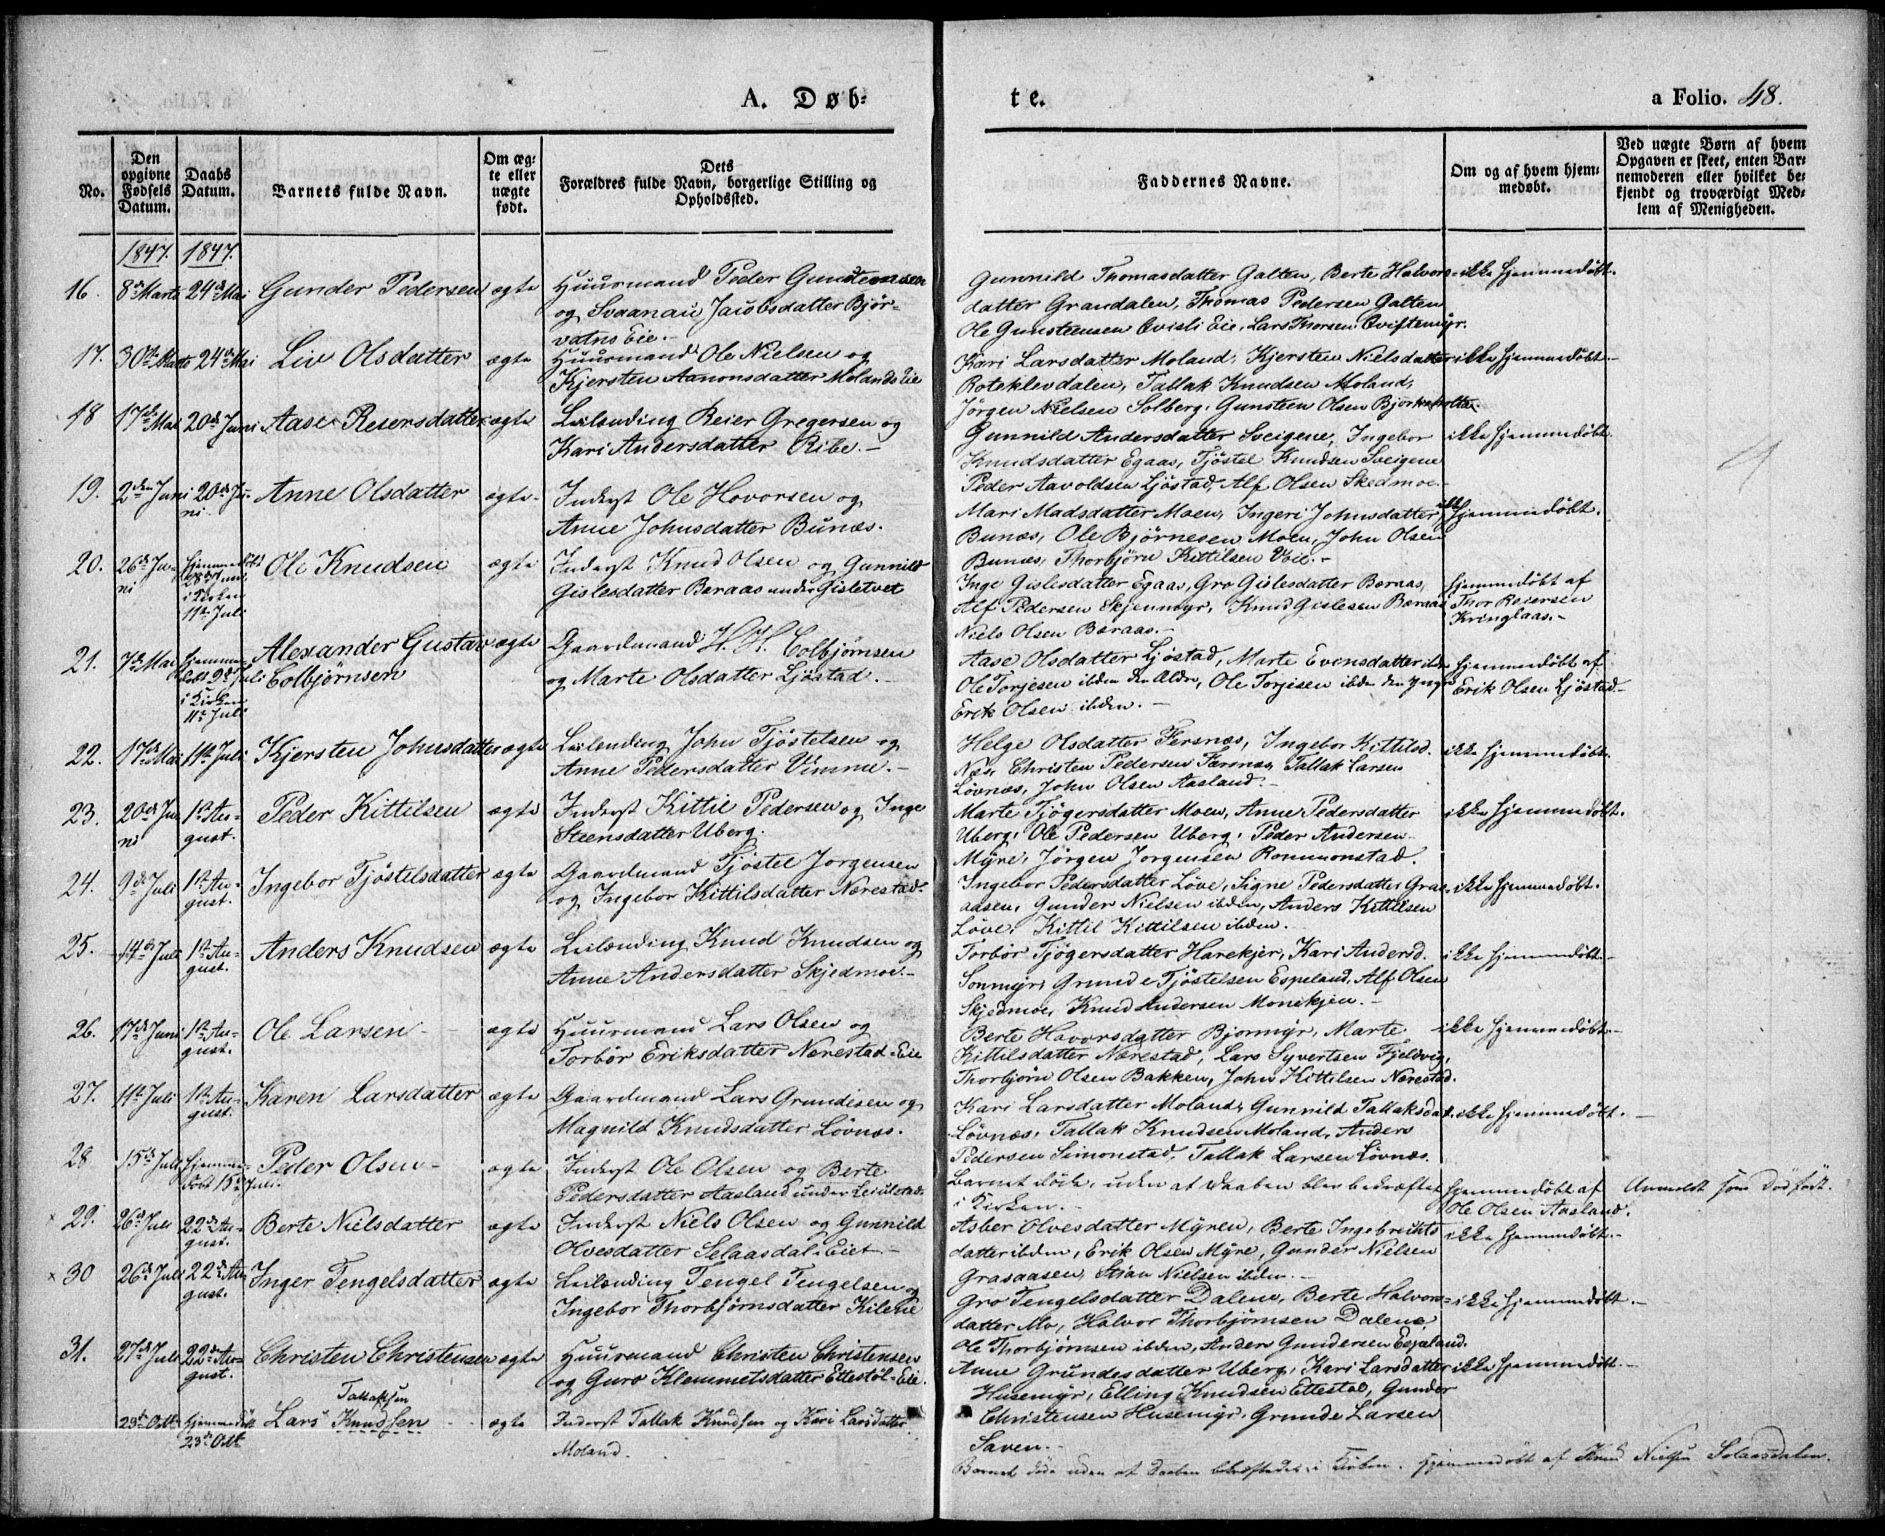 A. Døb-
te.
a Folio. 48.
No.
Den opgivne Fødsels Datum.
Daabs Datum.
Barnets fulde Navn.
Om ægte eller uægte født.
Dets Forældres fulde Navn, borgerlige Stilling og Opholdssted.
Faddernes Navne.
Om og af hvem hjemmedøbt.
Ved uægte Børn af hvem Opgaven er skeet, enten Barnemoderen eller hvilket bekjendt og troværdigt Medlem af Menigheden.
1847. 1847.
16. 8de Marts 24de Mai Gunder Pedersen ægte
Huusmand Peder Gundersen
og Svaanau Jacobsdatter Bjør-
vatns Eie.
Gunnild Thomasdatter Galten, Berte Halvors- ikke hjemmedøbt.
datter Grandalen, Thomas Pedersen Galten
Ole Gunsteensen Qvisti Eie, Lars Thorsen Qviftemyr.
17. 30te Marts 24de Mai Liv Olsdatter ægte
Huusmand Ole Nielsen og
Kjersten Aanonsdatter Molands Eie
Kari Larsdatter Moland, Kjersten Nielsdatter ikke hjemmedøbt.
Roteklevdalen, Tallak Knudsen Moland,
Jørgen Nielsen Solberg, Gunsteen Olsen Bjorkeholten
18 17de Mai 20de Juni Aase Reiersdatter ægte
Leilending Reier Gregersen og
Kari Andersdatter Ribe.
Gunnild Andersdatter Sveigene, Ingebor ikke hjemmedøbt.
Knudsdatter Egaas, Tjøstel Knudsen Sveigene
Peder Aavoldsen Ljøstad, Alf Olsen Skedmoe.
19. 2den Juni 20de Juni Anne Olsdatter ægte
Inderst Ole Hovorsen og
Anne Johnsdatter Bunæs.
Mari Madsdatter Moen, Ingeri Johnsdatter ikke hjemmedøbt.
Bunæs, Ole Bjørnesen Moen, John Olsen
Bunæs, Thorbjørn Kittilsen Veie.
20. 26de Juni Hjemmedøbt 28de Juni, i Kirken 11te Juli Ole Knudsen ægte
Inderst Knud Olsen og Gunnild
Gislesdatter Baraas under Gisletvet
Inge Gislesdatter Egaas, Gro Gislesdatter Baraas,
Alf Pedersen Skjennmyr, Knud Gislesen Baraas
Niels Olsen Baraas.
Hjemmedøbt af
Thor Reiersen
Kringlaas.
21. 7de Mai Hjemmedøbt 9de Juli i Kirken 11te Juli Alexander Gustav ægte
Colbjørnsen
Gaardmand H. H. Colbjørnsen
og Marte Olsdatter Ljøstad.
Aase Olsdatter Ljøstad, Marte Evensdatter ibdn
Ole Torjesen ibdn den Ældre, Ole Torjesen ibdn den Yngre
Erik Olsen ibdn.
Hjemmedøbt af
Erik Olsen Ljøstad
22. 17de Mai 11te Juli Kjersten Johnsdatter ægte
Leilending John Tjøstelsen og
Anne Pedersdatter Vimme.
Helge Olsdatter Fersnæs, Ingebor Kittilsd. ikke hjemmedøbt.
Næs, Christen Pedersen Fersnæs, Tallak Larsen
Løvnæs, John Olsen Aasland.
23. 20de Juni 1ste August. Peder Kittilsen ægte
Inderst Kittil Pedersen og Inge
Steensdatter Uberg.
Marte Tjøgersdatter Moen, Anne Pedersdatter ikke hjemmedøbt.
Uberg, Ole Pedersen Uberg, Peder Andersen
Myre, Jørgen Jorgensen Rommonstad.
24. 9de Juli 1ste August. Ingebor Tjøstelsdatter ægte
Gaardmand Tjøstel Jorgensen
og Ingebor Kittilsdatter Nærestad
Ingebor Pedersdatter Løve, Signe Pedersdatter Gras- ikke hjemmedøbt.
aasen, Gunder Nielsen ibdn, Anders Kittilsen
Løve, Kittil Kittilsen ibdn.
25. 14de Juli 1ste August. Anders Knudsen ægte
Leilending Knud Knudsen og
Anne Andersdatter Skjedmoe.
Torbor Tjøgersdatter Harekjer, Kari Andersd. ikke hjemmedøbt.
Sonmyr, Grunde Tjøstelsen Espeland, Alf Olsen
Skjedmoe, Knud Andersen Monekjen.
26. 17de Juni 1ste August. Ole Larsen ægte
Huusmand Lars Olsen og
Torbor Eriksdatter Nærestad-Eie
Berte Havorsdatter Bjormyr, Marte ikke hjemmedøbt.
Kittilsdatter Nærestad, Lars Syvertsen Fjeldvig,
Thorbjørn Olsen Bakken, John Kittilsen Nærestad.
27. 11te Juli 1ste August. Karen Larsdatter ægte
Gaardmand Lars Grundesen og
Magnild Knudsdatter Løvnæs.
Kari Larsdatter Moland, Gunnild Tallaksdat. ikke hjemmedøbt.
Løvnæs, Tallak Knudsen Moland, Anders
Pedersen Simonstad, Tallak Larsen Løvnæs.
28 15de Juli Hjemmedøbt 15de Juli. Peder Olsen ægte
Inderst Ole Olsen og Berte
Pedersdatter Aasland under Leiulstad.
Barnet døde, uden at Daaben blev bekræftet
i Kirken.
Hjemmedøbt af
Ole Olsen Aasland.
Anmeldt som dødfødt.
× 29. 26de Juli 22de August. Berte Nielsdatter ægte
Inderst Niels Olsen og Gunnild
Olvesdatter Selaasdal-Eiet
Asber Olvesdatter Myren, Berte Ingebreikts- ikke hjemmedøbt.
datter ibdn, Erik Olsen Myre, Gunder Nielsen
Grasaasen, Stian Nielsen ibdn.
× 30 26de Juli 22de August. Inger Tengelsdatter ægte
Leilending Tengel Tengelsen og
Ingebor Thorbjørnsdatter Kilene
Gro Tengelsdatter Dalene, Berte Halvors- ikke hjemmedøbt.
datter Mo, Halvor Thorbjørnsen Dalene,
Ole Thorbjørnsen ibdn, Anders Gundersen Espeland.
31. 27de Juli 22de August. Christen Christensen ægte
Huusmand Christen Christensen
og Guro Klemmetsdatter Ettestøl-Eie.
Anne Grundesdatter Uberg, Kari Larsdatter ikke hjemmedøbt.
Husemyr, Elling Knudsen Ettestøl, Gunder
Christensen Husemyr, Grunde Larsen
Saven.
23de Octb Hjemmedøbt 23de Octb Lars Tallaksen Knudsen ægte
Inderst Tallak Knudsen og Kari Larsdatter
Moland.
Barnet døde uden at Daaben bekræftedes i Kirken. Hjemmedøbt af Knud Nielsen Selaasdalen.